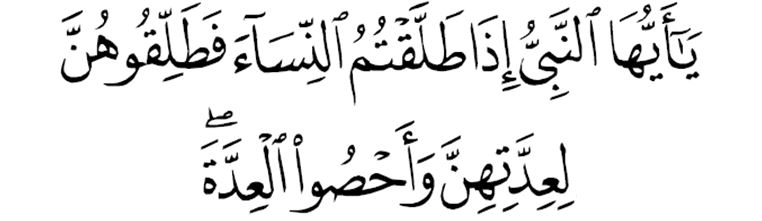 يَـٰٓأَيُّهَا ٱلنَّبِىُّ إِذَا طَلَّقْتُمُ ٱلنِّسَآءَ فَطَلِّقُوهُنَّ
لِعِدَّتِهِنَّ وَأَحْصُوا۟ ٱلْعِدَّةَ ۖ